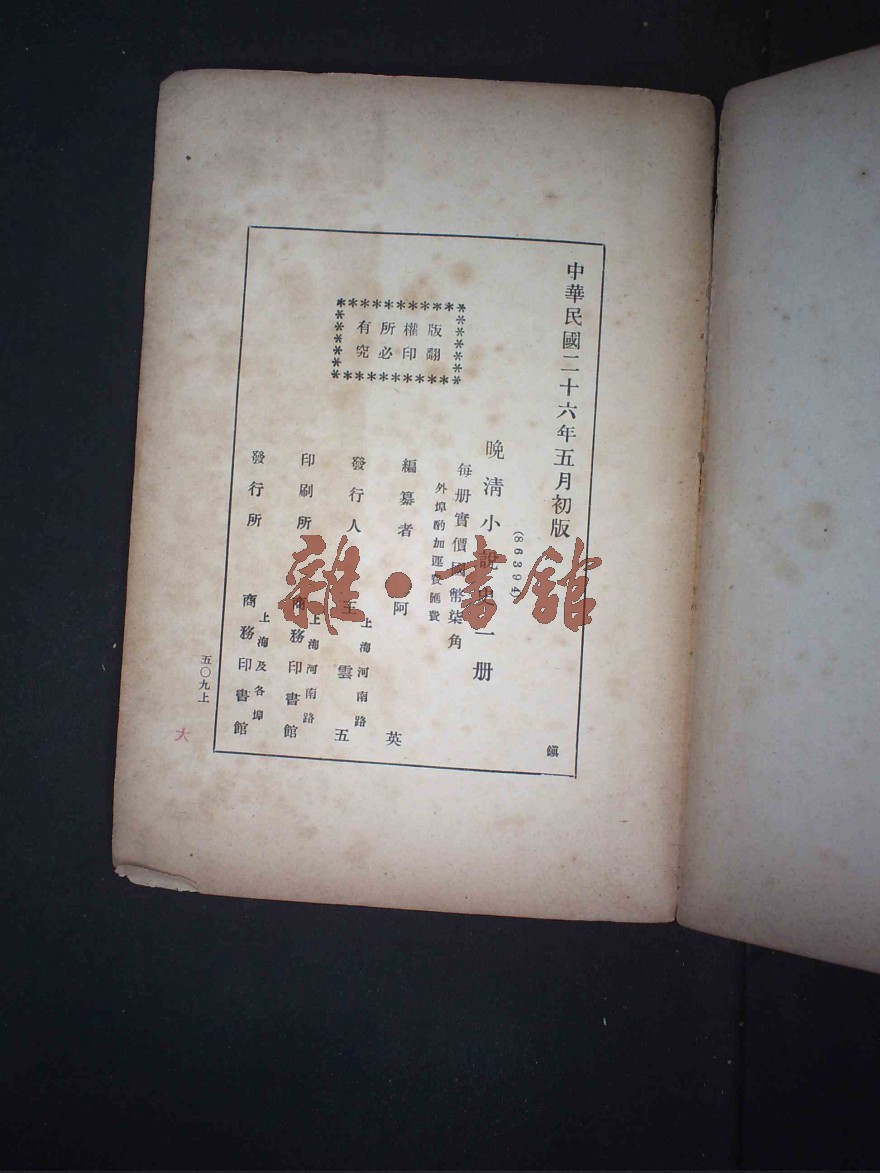 中華民國二十六年五月初版
(86394)
晚清小說史一册
每册實價國幣柒角
外埠酌加運費匯費
版權所有
翻印必究
編纂者 阿英
發行人 王雲五
上海河南路
印刷所 商務印書館
上海河南路
發行所 商務印書館
上海及各埠
鎭
五〇九上
大
雜·書館